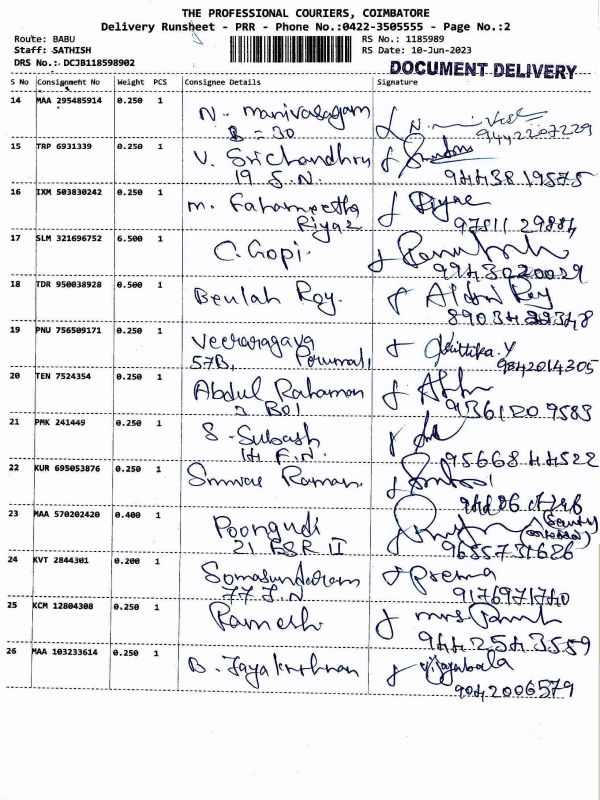 THE PROFESSIONAL COURIERS, COIMBATORE
Delivery Runsheet - PRR - Phone No.:0422-3505555 - Page No.:2
Route: BABU
RS No.: 1185989
Staff: SATHISH
RS Date: 10-Jun-2023
DRS No.: DCJB118598902
DOCUMENT DELIVERY
S No Consignment No Weight PCS Consignee Details Signature
14 MAA 295485914 0.250 1 N. manivasagam
B - 30
9442207229
15 TRP 6931339 0.250 1 V. Srichandhru
19 J.N.
9443819575
16 IXM 503830242 0.250 1 m. Fahameetha
Riyaz
17 SLM 321696752 6.500 1 C. Gopi.
9943020029
18 TDR 950038928 0.500 1 Beulah Roy. Roy
19 PNU 756509171 0.250 1 Veeraragava
57B, Perumal
9842014305
20 TEN 7524354 0.250 1 Abdul Rahaman
21 PMK 241449 0.250 1 S. Subash
14 F.N.
9566844522
22 KUR 695053876 0.250 1 Raman
23 MAA 570202420 0.400 1 Poongudi
21 ESR II
9685731626
24 KVT 2844301 0.200 1 Somasunderam Prema
77 J.N. 9176971740
25 KCM 12804308 0.250 1 Ramesh mrs
9442543559
26 MAA 103233614 0.250 1 B. Jayakrishnan Vijayabala
9042006579